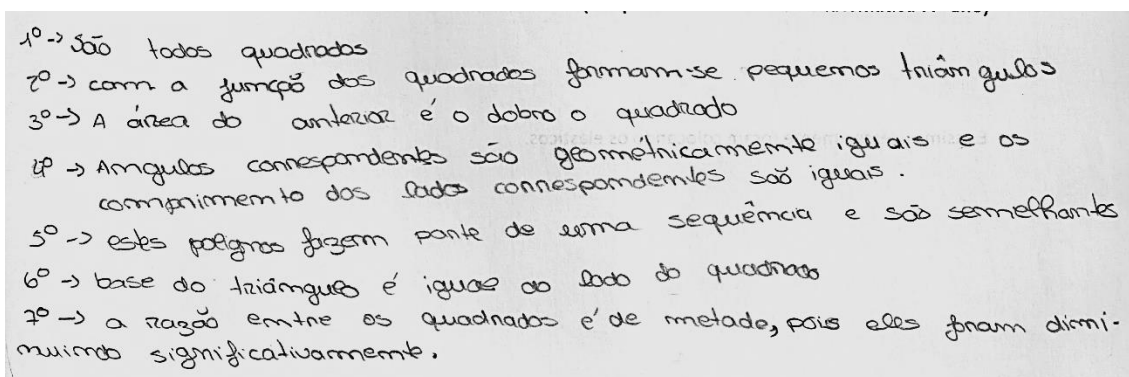 1º -> São todos quadrados
2º -> com a junção dos quadrados formam-se pequenos triângulos
3º -> A área do anterior é o dobro o quadrado
4º -> Angulos correspondentes são geométricamente iguais e os
comprimento dos lados correspondentes saõ iguais.
5º -> estes polignos fazem parte de uma sequência e são semelhantes
6º -> base do triângulo é igual ao lado do quadrado
7º -> a razão entre os quadrados é de metade, pois eles foram dimi-
nuindo significativamente.